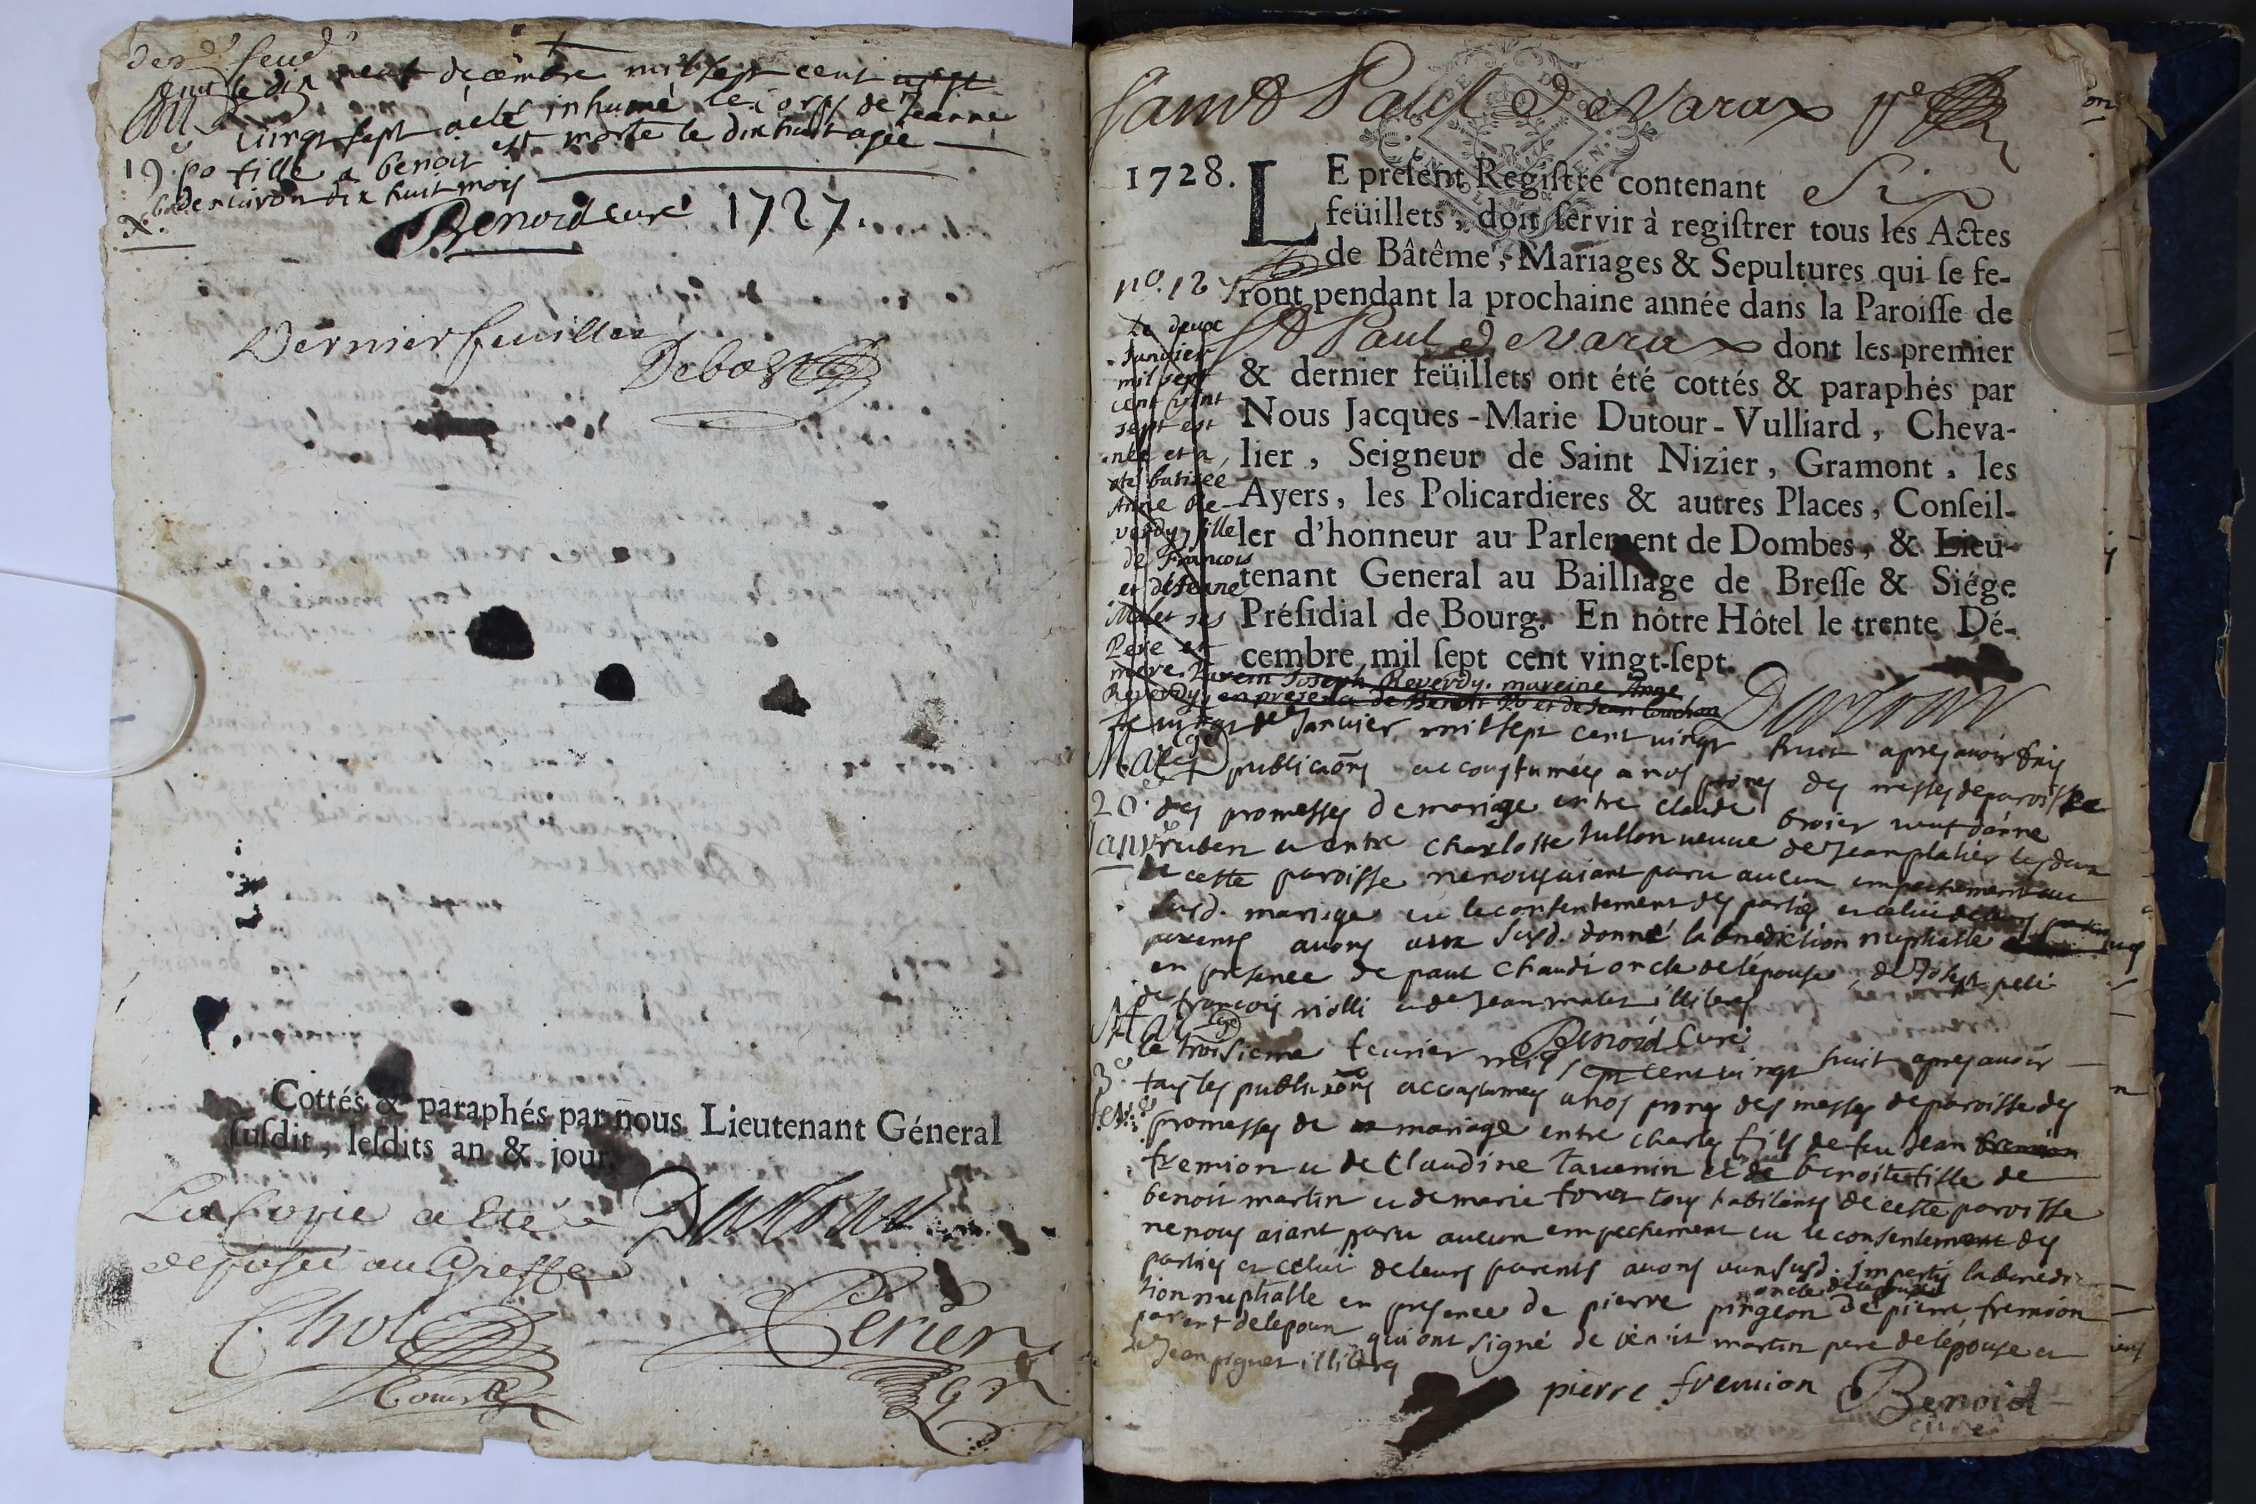 le dix neuf decembre mil sept cent
vingt sept a eté inhumé le corps de Jeanne
19.e fille a benoit est morte le dix huit agée
d'environ dix huit mois
Benoid curé 1727.
Dernier feuillet
Cottés & paraphés par nous Lieutenant Géneral
susdit, lesdits an & jour.
La Copie a eté Dutour
deposée au Greffe
Chol Perier
Saint Paul de Varax
1728. LE present Registre contenant Six
feüillets, doit servir à registrer tous les Actes
de Bâtême, Mariages & Sepultures qui se fe-
ront pendant la prochaine année dans la Paroisse de
St Paul de Varax dont les premier
& dernier feüillets ont été cottés & paraphés par
Nous Jacques-Marie Dutour-Vulliard, Cheva-
lier, Seigneur de Saint Nizier, Gramont, les
Ayers, les Policardieres & autres Places, Conseil-
ler d'honneur au Parlement de Dombes, & Lieu-
tenant General au Bailliage de Bresse & Siége
Présidial de Bourg. En nôtre Hôtel le trente Dé-
cembre mil sept cent vingt-sept.
Dutour
Le deux
Janvier
mil sept
cent vint
sept est
née et a
eté batisée
Anne Re-
verdy, fille
de Francois
et de Jeanne
Malet ses
Pere et
mere. Parein Joseph Reverdy. mareine Anne
Reverdy, en presence de Benoit et de Jean Couchon
le vingt de Janvier mil sept cent vingt huit apres avoir fais
Mariage
les publicaõns accoustumées a nos prones des messes de paroisse
20.e des promesses de mariage entre claude broier veuf d'anne
Janvr ruben et entre charlotte tullon veuve de Jean platier les deux
de cette paroisse ne nous aiant paru aucun empechement au
susd. mariage vu le consentement des parties et celui de
parents avons aux susd. donné la benediction nuptialle
en presence de paul chaudi oncle de lépouse, de Joseph peti
de francois niolli et de Jean malet illiterés
Benoid Curé
Mariage
le troisieme fevrier mil sept cent vingt huit apres avoir
3.e fais les publicaõns accoustumées a nos prones des messes de paroisse des
fevr. promesses de mariage entre charles fils de feu Jean fremion
fremion et de Claudine Tavernin et de benoite fille de
benoit martin et de marie foret tous habitants de cette paroisse
ne nous aiant paru aucun empechement vu le consentement des
parties et celui de leurs parents avons aux susd. imparti la benedi-
tion nuptialle en presence de pierre pingeon oncle de lépouse de pierre fremion
parent de lepoux qui ont signé de benoit martin pere de lépouse et
de Jean piguet illiterés
pierre fremion Benoid
curé